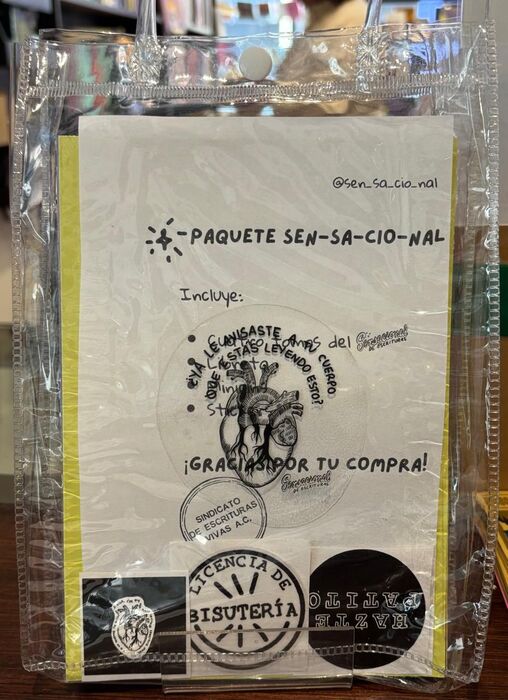 @sen_sa_cio_nal
-PAQUETE SEN-SA-CIO-NAL
Incluye:
• Cuatro tomos del Sensacional
DE ESCRITURAS
• Libreta
•
• Sti
¿YA LE AVISASTE A TU CUERPO
QUE ESTÁS LEYENDO ESTO?
¡GRACIAS POR TU COMPRA!
Sensacional
DE ESCRITURAS
SINDICATO
DE ESCRITURAS
VIVAS A.C.
LICENCIA DE
BISUTERÍA
HAZTE
PATITO